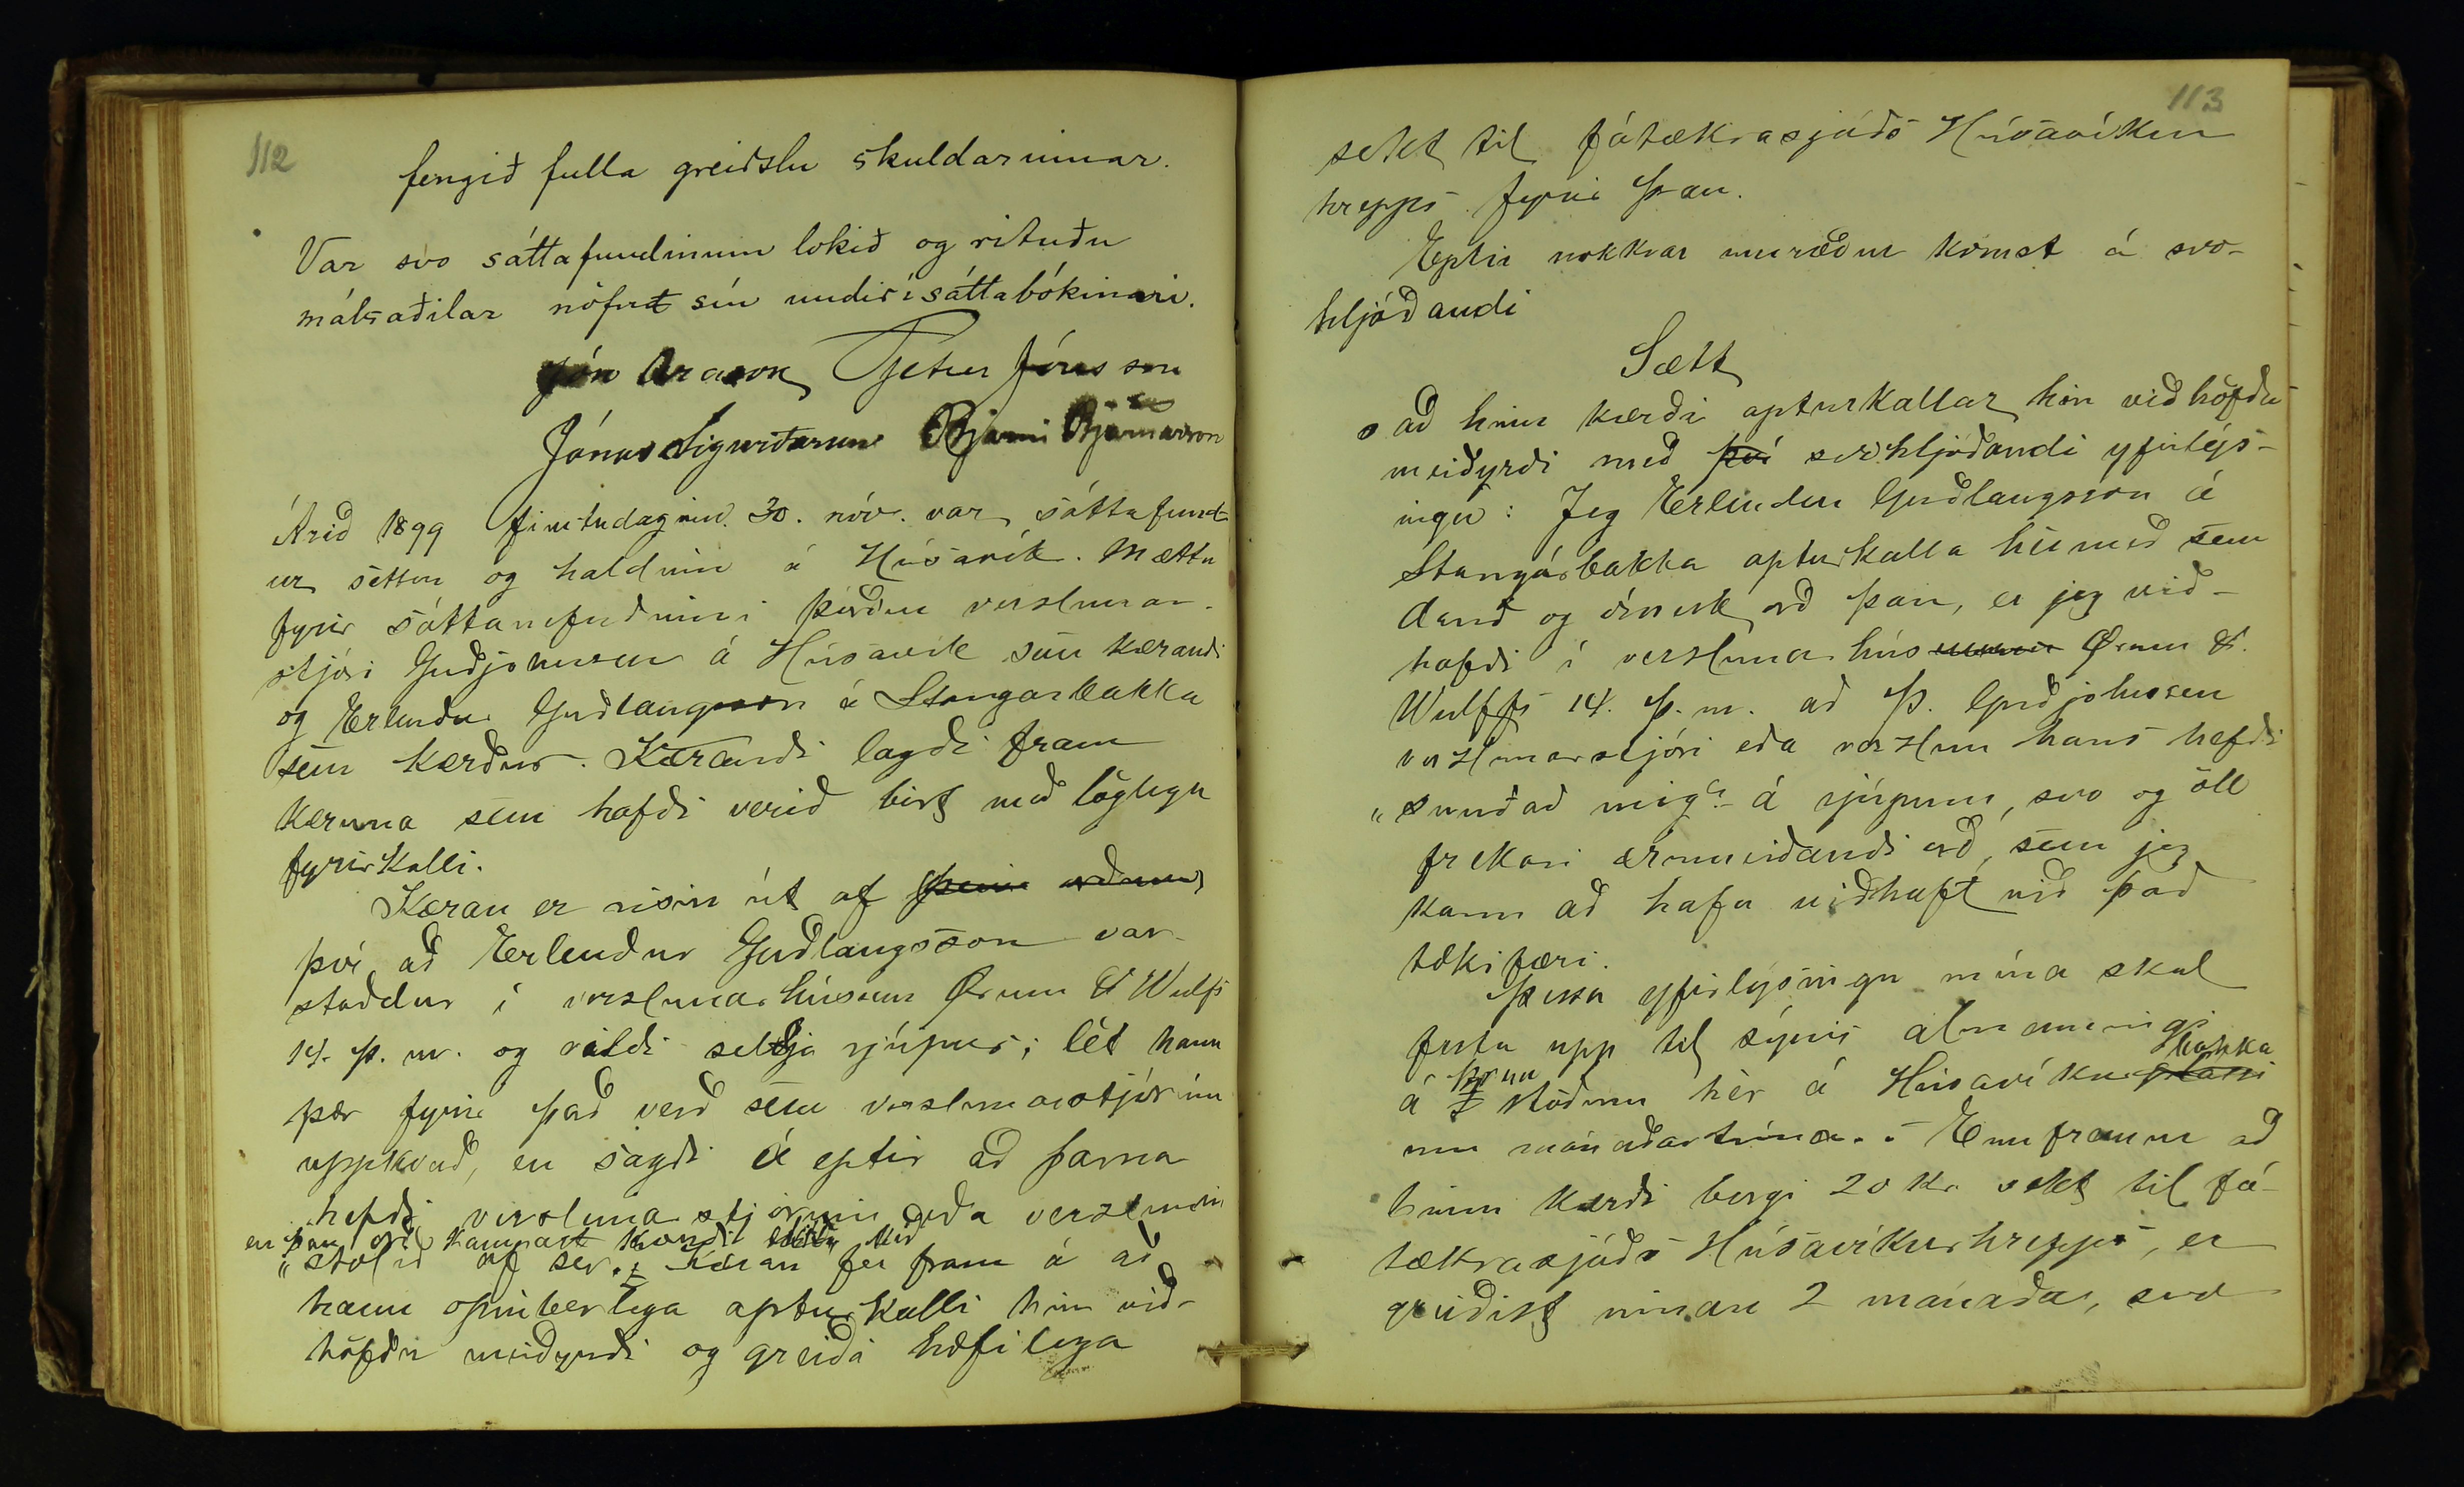 112
fengið fulla greiðslu skuldarinnar.
Var svo sáttafundinum lokið og rituðu
málsaðilar nöfn sín undir í sáttabókinni.
Jón Arason Pjetur Jónsson
Jónas Sigurðsson Bjarni Bjarnarson
Árið 1899 fimtudaginn 30. nóv. var sáttafund-
ur settur og haldinn á Húsavík. Mættu
fyrir sáttanefndinni Þórður verslunar-
stjóri Guðjohnsen á Húsavík sem kærandi
og Erlendur Guðlaugsson á Stangarbakka
sem kærður. Kærandi lagði fram
kæruna sem hafði verið birt með löglegu
fyrirkalli.
Kæran er risin út af þeim orðum
því að Erlendur Guðlaugsson var
staddur í verslunarhúsum Ørum & Wulfs
14. þ. m. og vildi selja rjúpur; lét hann
þær fyrir það verð sem verslunarstjórinn
uppkvað, en sagði á eptir að þarna
hefði verslunarstjórinn eða verslunin
en þau orð kannast kærði við
"stolið af sér. Kæran fer fram á að
hann opinberlega apturkalli hin við-
höfðu meiðyrði og greiði hæfilega
113
sekt til fátækrasjóðs Húsavíkur
hrepps fyrir þau.
Eptir nokkrar umræður komst á svo-
hljóðandi
Sætt
að hinn kærði apturkallar hin viðhöfðu
meiðyrði með því svohljóðandi yfirlýs-
ingu: Jeg Erlendur Guðlaugsson á
Stangárbakka apturkalla hér með sem
dauð og ómerk orð þau, er jeg við-
hafði í verslunarhúsum Ørum &
Wulffs 14. þ. m. að Þ. Guðjohnsen
verslunarstjóri eða verslun hans hefði
"snuðað mig" á rjúpum, svo og öll
frekari ærumeiðandi orð, sem jeg
kann að hafa viðhaft við það
tækifæri.
Þessa yfirlýsingu mína skal
festa upp til sýnis almenningi
bakka
á stöðum hér á Húsavíkurplássi
um mánaðartíma. - Ennfremur að
hinn kærði borgi 20 kr sekt til fá-
tækrasjóðs Húsavíkurhrepps, er
greiðist innan 2 mánaða, svo